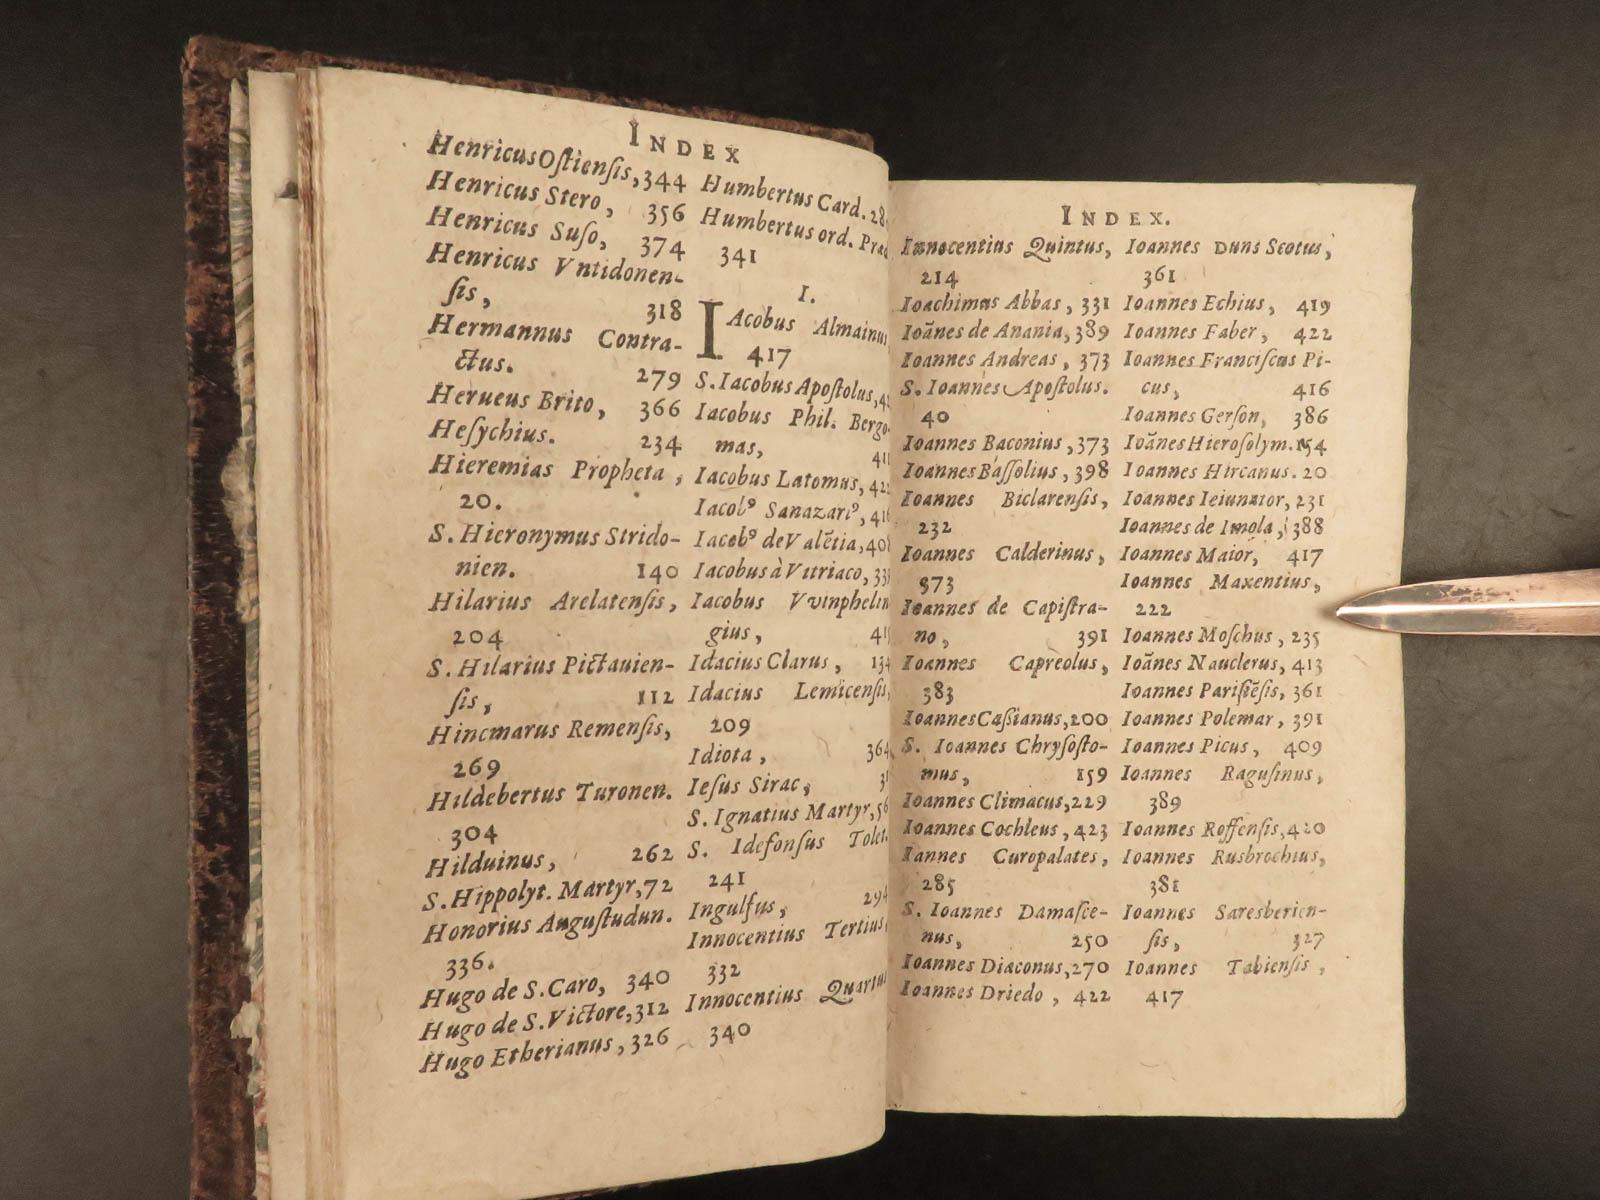 INDEX
Henricus Ostiensis, 344
Henricus Stero, 356
Henricus Suso, 374
Henricus Vntidonen-
sis, 318
Hermannus Contra-
ctus. 279
Herueus Brito, 366
Hesychius. 234
Hieremias Propheta,
20.
S. Hieronymus Strido-
nien. 140
Hilarius Arelatensis,
204
S. Hilarius Pictauien-
sis, 112
Hincmarus Remensis,
269
Hildebertus Turonen.
304
Hilduinus, 262
S. Hippolyt. Martyr, 72
Honorius Augustudun.
336.
Hugo de S. Caro, 340
Hugo de S. Victore, 312
Hugo Etherianus, 326
Humbertus Card. 28
Humbertus ord. Præd
341
I.
IAcobus Almainus
417
S. Iacobus Apostolus, 4
Iacobus Phil. Bergo-
mas, 411
Iacobus Latomus, 422
Iacobꝰ Sanazariꝰ, 416
Iacobꝰ de Valẽtia, 408
Iacobus à Vitriaco, 33
Iacobus Vvinphelin
gius, 41
Idacius Clarus, 134
Idacius Lemicensis,
209
Idiota, 364
Iesus Sirac, 3
S. Ignatius Martyr, 56
S. Idefonsus Tolet.
241
Ingulfus, 294
Innocentius Tertius,
332
Innocentius Quartus
340
INDEX.
Innocentius Quintus,
214
Ioachimus Abbas, 331
Ioãnes de Anania, 389
Ioannes Andreas, 373
S. Ioannes Apostolus.
40
Ioannes Baconius, 373
Ioannes Bassolius, 398
Ioannes Biclarensis,
232
Ioannes Calderinus,
373
Ioannes de Capistra-
no, 391
Ioannes Capreolus,
383
Ioannes Cassianus, 200
S. Ioannes Chrysosto-
mus, 159
Ioannes Climacus, 229
Ioannes Cochleus, 423
Iannes Curopalates,
285
S. Ioannes Damasce-
nus, 250
Ioannes Diaconus, 270
Ioannes Driedo, 422
Ioannes Duns Scotus,
361
Ioannes Echius, 419
Ioannes Faber, 422
Ioannes Franciscus Pi-
cus, 416
Ioannes Gerson, 386
Ioãnes Hierosolym. 154
Ioannes Hircanus. 20
Ioannes Ieiunator, 231
Ioannes de Imola, 388
Ioannes Maior, 417
Ioannes Maxentius,
222
Ioannes Moschus, 235
Ioãnes Nauclerus, 413
Ioannes Parisiẽsis, 361
Ioannes Polemar, 391
Ioannes Picus, 409
Ioannes Ragusinus,
389
Ioannes Roffensis, 420
Ioannes Rusbrochius,
381
Ioannes Saresberien-
sis, 327
Ioannes Tabiensis,
417